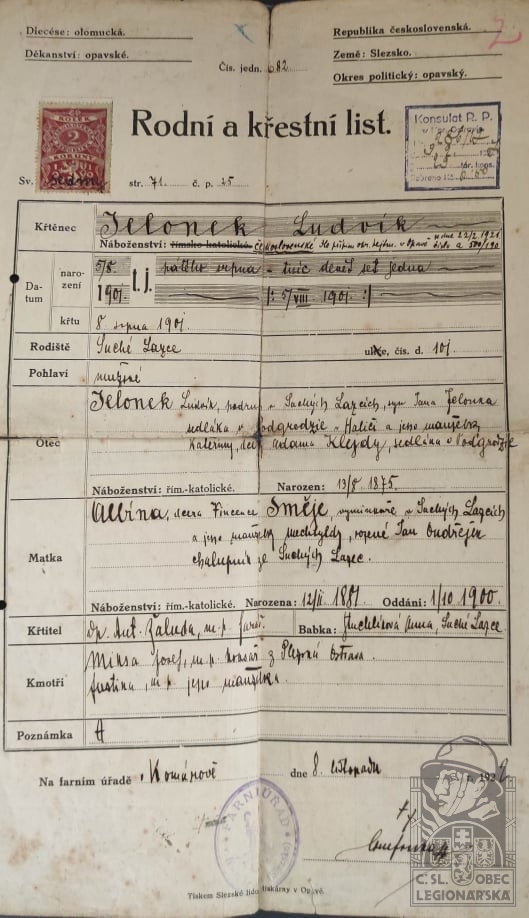 Diecése: olomucká.
Republika československá.
Děkanství: opavské.
Země: Slezsko.
Čís. jedn. 682
Okres politický: opavský.
2
KOLEK
2
KORUNY
Rodní a křestní list.
Konsulat R. P.
Sv. sedmý str. 71 č. p. 25
Křtěnec Jelonek Ludvík
Náboženství: římsko-katolické. československé dne 22/2 1921
Datum
narození 5/8. 1901 t. j. pátého srpna tisíc devět set jedna /: 5/VIII. 1901 :/
křtu 8 srpna 1901
Rodiště Suché Lazce ulice, čís. d. 101
Pohlaví mužské
Otec
Jelonek Ludvík, v Suchých Lazcích, syn Jana Jelonka
sedláka v Podgrodzie v Haliči a jeho manželky
Kateřiny, dcery Adama Klejdy, sedláka v Podgrodzie
Náboženství: řím.-katolické. Narozen: 13/8 1875.
Matka
Albína, dcera Vincence Směje, výminkáře v Suchých Lazcích
a jeho manželky rozené Jan Ondřejek
chalupník ze Suchých Lazec.
Náboženství: řím.-katolické. Narozena: 12/II. 1881 Oddáni: 1/10 1900
Křtitel Ant. Žaluda, m. p. farář. Babka: Anna, Suché Lazce
Kmotři
Miksa Josef, m. p. z Ostrava.
Justina, m. p. jeho manželka
Poznámka A
Na farním úřadě v Komárově dne 8. listopadu 1922
FARNÍ ÚŘAD
Tiskem Slezské lido tiskárny v Opavě.
Č. SL. OBEC
LEGIONÁŘSKÁ